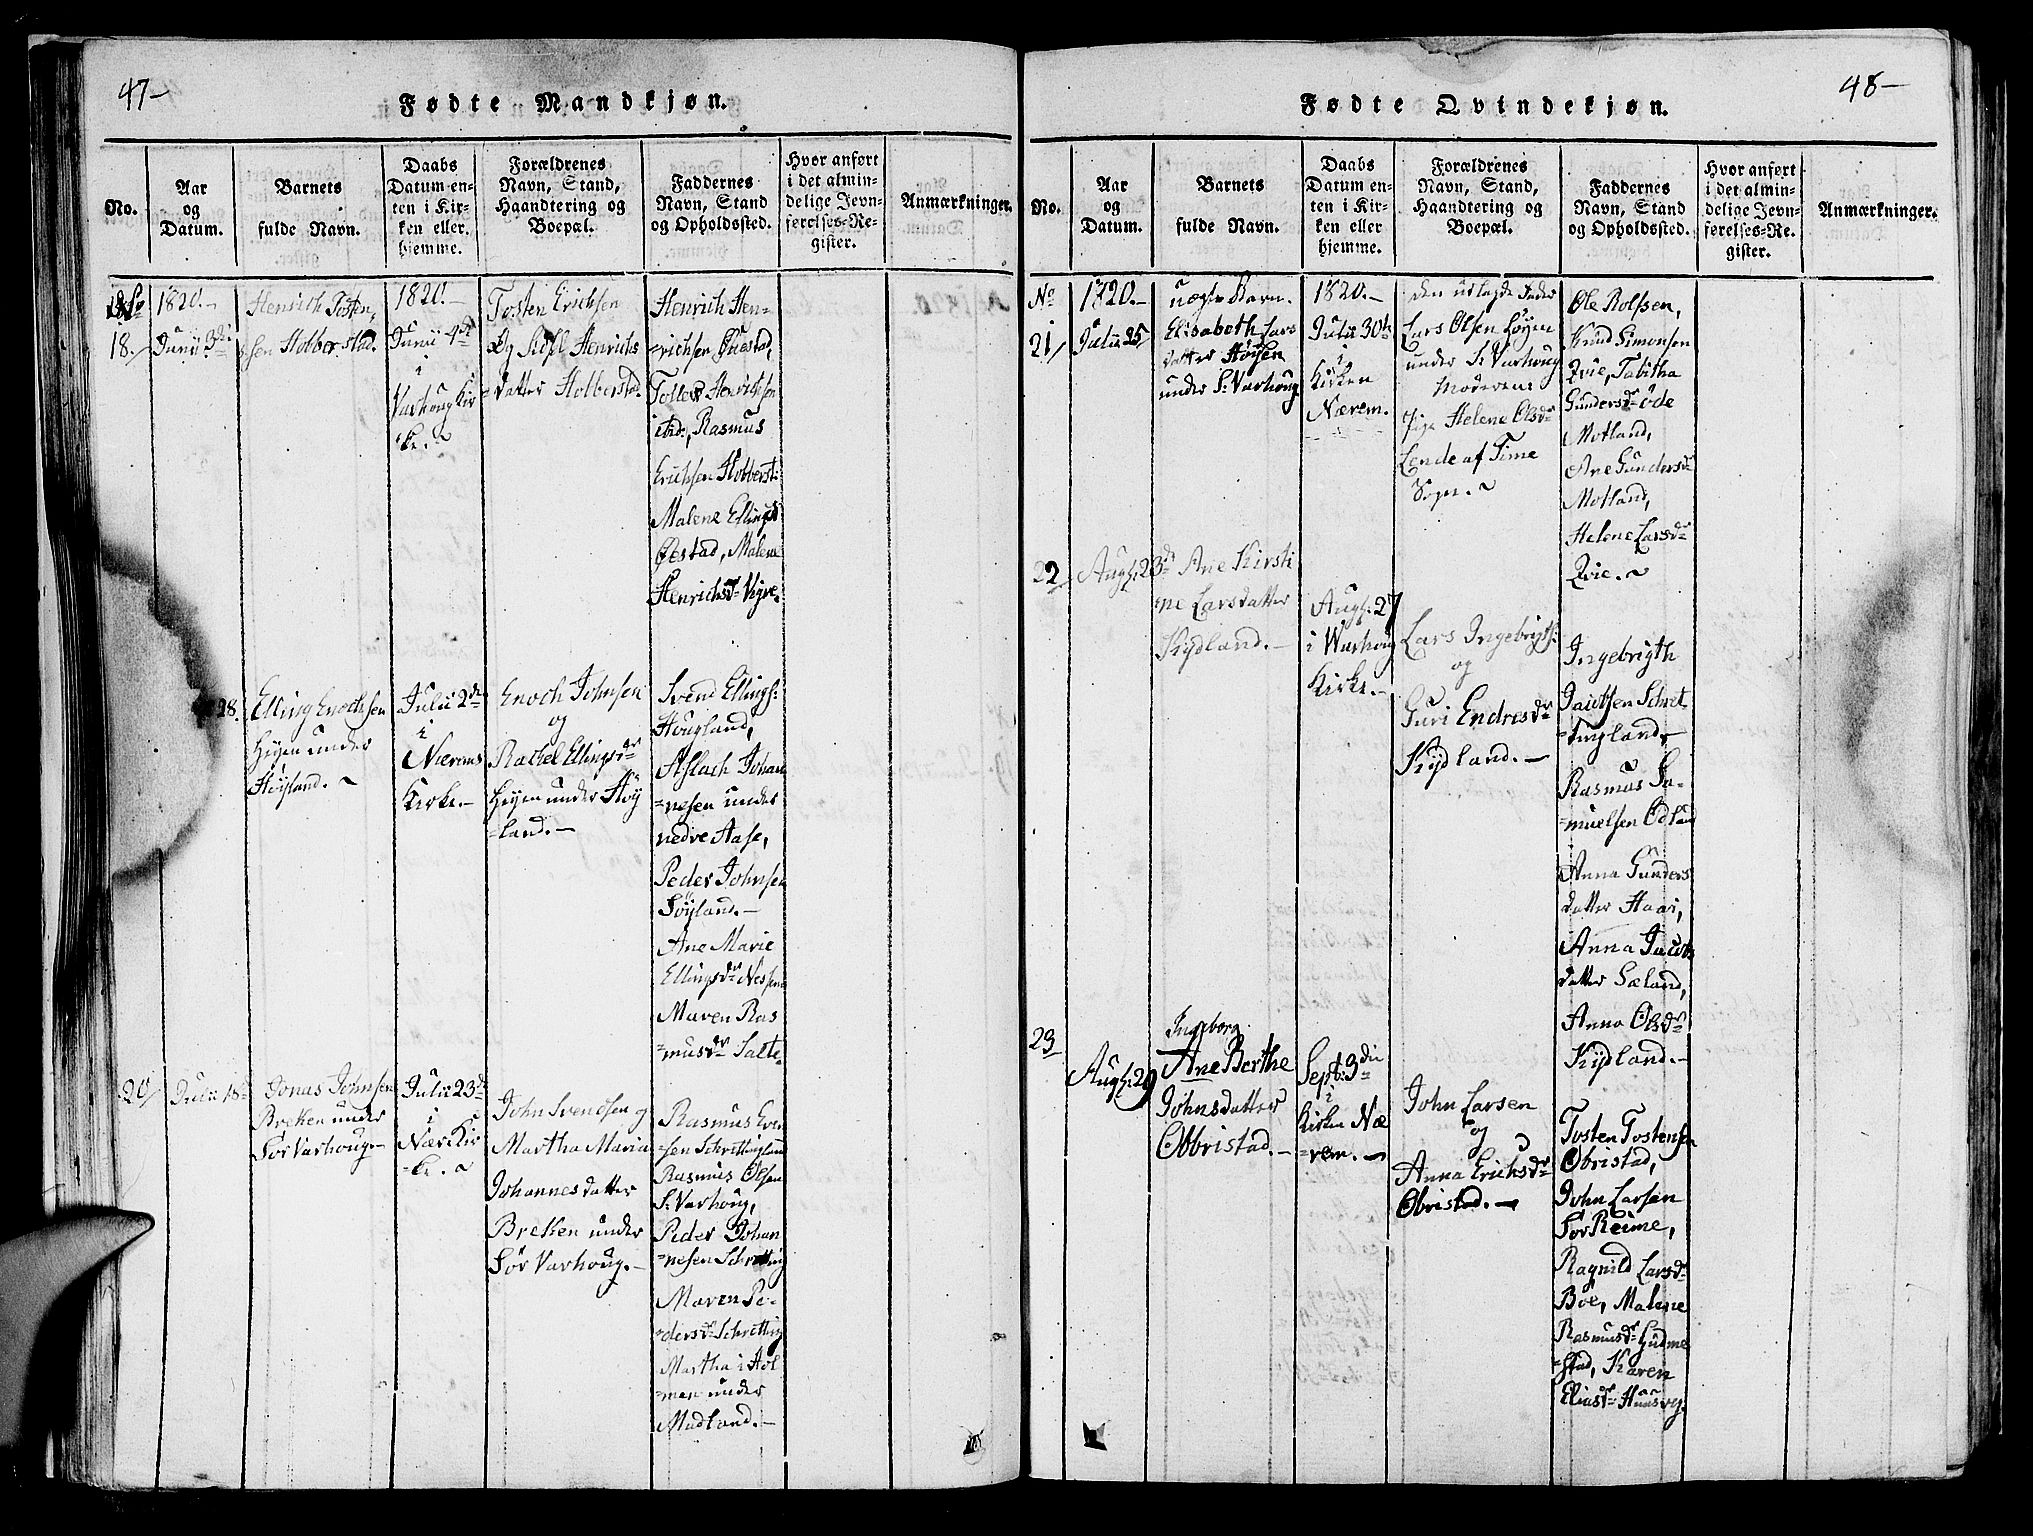 47-
Fødte Mandkjøn.
No.
Aar
og
Datum.
Barnets
fulde Navn.
Daabs
Datum en-
ten i Kir-
ken eller
hjemme.
Forældrenes
Navn, Stand,
Haandtering og
Boepæl.
Faddernes
Navn, Stand
og Opholdssted.
Hvor anført
i det almin-
delige Jevn-
førelses-Re-
gister.
Anmærkninger.
No
18.
1820.-
Junii 3die
Henrich Tosten-
sen Hobberstad.
1820.-
Junii 4de
i
Varhoug Kir
ke. ~
Tosten Erichsen
Og Sidsl Henrichs
=datter Hobberstad.
Henrich Hen-
=richsen Questad,
Tollef Henrichsen
ibid:, Rasmus
Erichsen Hobberst:
Malene Ellingsd
Qvestad, Malene
Henrichsdr Vigre.
28.
Elling Enochsen
Heyen under
Høyland. ~
Julii 2de
i
Nærems
Kirke.-
Enoch Johnsen
og
Rachel Ellingsdr
Heyen under Høy
=land.-
Svend Ellings:
Hougland,
Aslach Johan
=nesen under
nedre Aase,
Peder Johnsen
Søyland.-
Ane Marie
Ellingsdr Nessem
Maren Ras
=musdr Salte.
20/
Julii 18
Jonas Johnsen
Brekken under
Sør Varhoug-
Julii 23de
i
Nær: Kir
=ke. ~
John Svendsen og
Martha Maria
Johannesdatter
Brekken under
Sør Varhoug.-
Rasmus Iver
=sen Schrettingland
Rasmus Olsen
S: Varhoug,
Peder Johan
=nesen Schretting
Maren Pe-
=dersdr Schretting
Martha i Hol
=men under
Madland.-
48-
Fødte Qvindekjøn.
No.
Aar
og
Datum.
Barnets
fulde Navn.
Daabs
Datum en-
ten i Kir-
ken eller
hjemme.
Forældrenes
Navn, Stand,
Haandtering og
Boepæl.
Faddernes
Navn, Stand
og Opholdssted.
Hvor anført
i det almin-
delige Jevn-
førelses-Re-
gister.
Anmærkninger.
No
21/
1820.-
Julii 25
uægte Barn.
Elisabeth Lars
datter Høyen
under S: Varhoug
1820.-
Julii 30te
i
Kirken
Nærem.
Den udlagde Fader
Lars Olsen Høyen
under S: Varhoug
Moderen
Pige Helene Olsdr
Lende af Time
Sogn. ~
Ole Rolfsen,
Knud Simonsen
Qvie, Tabitha
Gundersdr øde
Motland,
Ane Gundersdr
Motland,
Helene Larsdr
Qvie. ~
22/
Augs: 23de
Ane Kirsti
ne Larsdatter
Kydland.-
Augs: 27
i Varhoug
Kirke.-
Lars Ingebrigts:
og
Guri Endresdr
Kydland.-
Ingebrigth
Schret
=tingland,
Rasmus Sa-
=muelsen Ødland
Anna Gunders
datter Haar,
Anna Jacobs
datter Sæland,
Anna Olsdr
Kydland.-
23
Augs: 29
Ingeborg
Ane Berthe
Johnsdatter
Obbristad.-
Sept: 3die
i
Kirken Næ
=rem.-
John Larsen
og
Anna Erichsdr
Obristad.-
Tosten Tostensen
Obristad,
John Larsen
Sør Reime,
Ragnild Larsdr
Bøe, Malene
Rasmusdr Gudme
=stad, Karen
Eliasdr